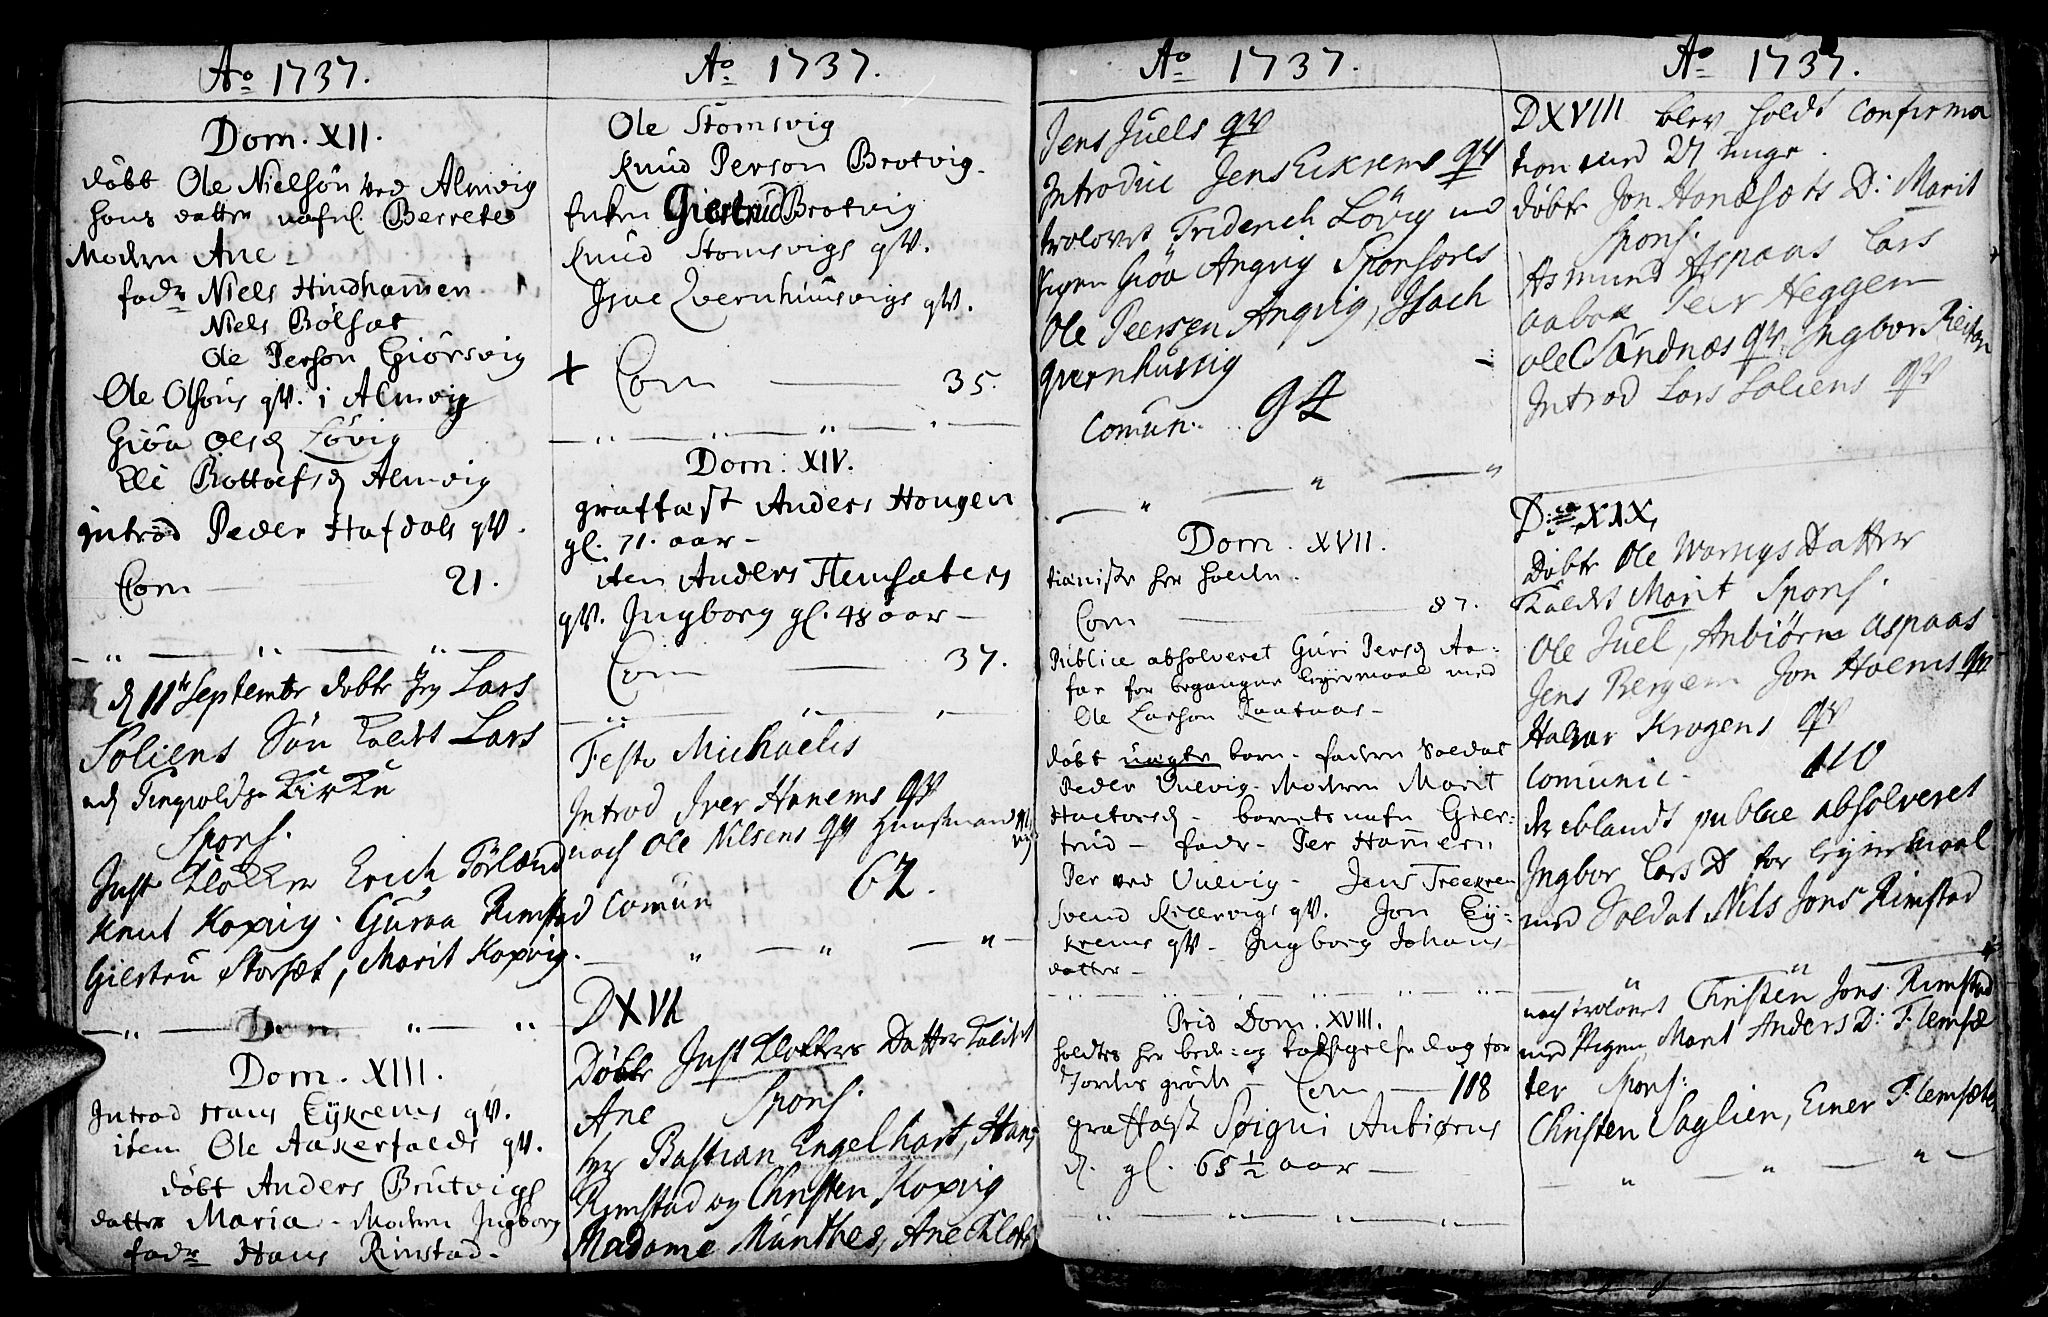 Ao 1737.
Dom. XII.
døbt Ole Nielsøn ved Almvig
hans datter nafnl. Berrete
Modern Ane -
fadr Niels Hindhammen
Niels Bølsæt
Ole Person Giørsvig
Ole Olsøns qv. i Almvig
Giøa Olsd Løvig
Eli Rottolfsd Almvig
Introd Peder Hafdals qv.
Com 21.
d 11te Septembr døbte Jeg Lars
Soliens Søn kaldet Lars
ved Tingvolds Kirke
Spons.
Just Klokker Erich Torland
Knut Koxvig. Guraa Rimstad
Giertru Storsæt, Marit Koxvig.
Dom
Dom. XIII.
Introd Hans Eykrems qv.
item Ole Aakerfalds qv.
døbt Anders Brutvigs
datter Maria - Modern Ingborg
fadr Hans Rimstad -
Ao 1737.
Ole Stomsvig
Knud Person Brotvig -
Enken Giertrud Brotvig
Knud Stomsvigs qv.
Isac Qvernhuusvigs qv.
+ Com 35.
Dom. XIV.
graffæst Anders Hougen
gl. 71. aar -
item Anders Flemsæters
qv. Ingborg gl. 48 aar -
Com 37.
Festo Michaelis
Introd Iver Hanems qv
noch Ole Nilsens qv Huusmand
Comun 62.
D XVI
Døbte Just Klokkers Datter kaldet
Ane Spons.
hr Bastian Engelhart, Hans
Rimstad og Christen Koxvig
Madame Munthes, Ane Klokk
Ao 1737.
Jens Juels qv
Introduc Jens Eikrems qv
trolovet Friderich Løvig med
Pigen Giøa Angvig Sponsores
Ole Peersen Angvig, Isach
qvernhusvig
Comun: 94
Dom. XVII.
tieniste her holden.
Com 87.
Publice absolveret Guri Persd Aa-
for begangne leyermaal med
Ole Larson
døbt uægte barn - fadern Soldat
Peder Vulvig - Modern Marit
- barnets nafn Gier-
trud - fadr - Per Hammern
Per ved Vulvig - Jens
Svend qv. Jon Ey-
krems qv - Ingborg Johans
datter -
Prid Dom. XVIII.
holdtes her bede- og taksigelse dag for
Jordens grøde - Com - 108
graffæst Siigni Anbiørns
d. gl. 68 1/2 aar -
Ao 1737.
D XVIII blev holdt Confirma
tion med 27 unge.
døbte Jon Hanesæts D: Marit
Spons.
Asmund Aspaas Lars
Peir Heggem
Ole Sandnæs qv, Ingbor
Introd Lars Soliens qv
D: XIX,
Døbte Ole Datter
Kaldet Marit Spons.
Ole Juel, Anbiørn Aspaas
Jens Bergem Jon Holems qv
Halvar Krogens qv
Comunic - 110
der iblandt publice absolveret
Ingbor Lars D for leyermaal
med Soldat Nils Jons Rimstad
noch trolovet Christen Jons Rimstad
med Pigen Marit Anders D: Flemsæ
ter Spons:
Christen Saglien, Einer Flemsæter